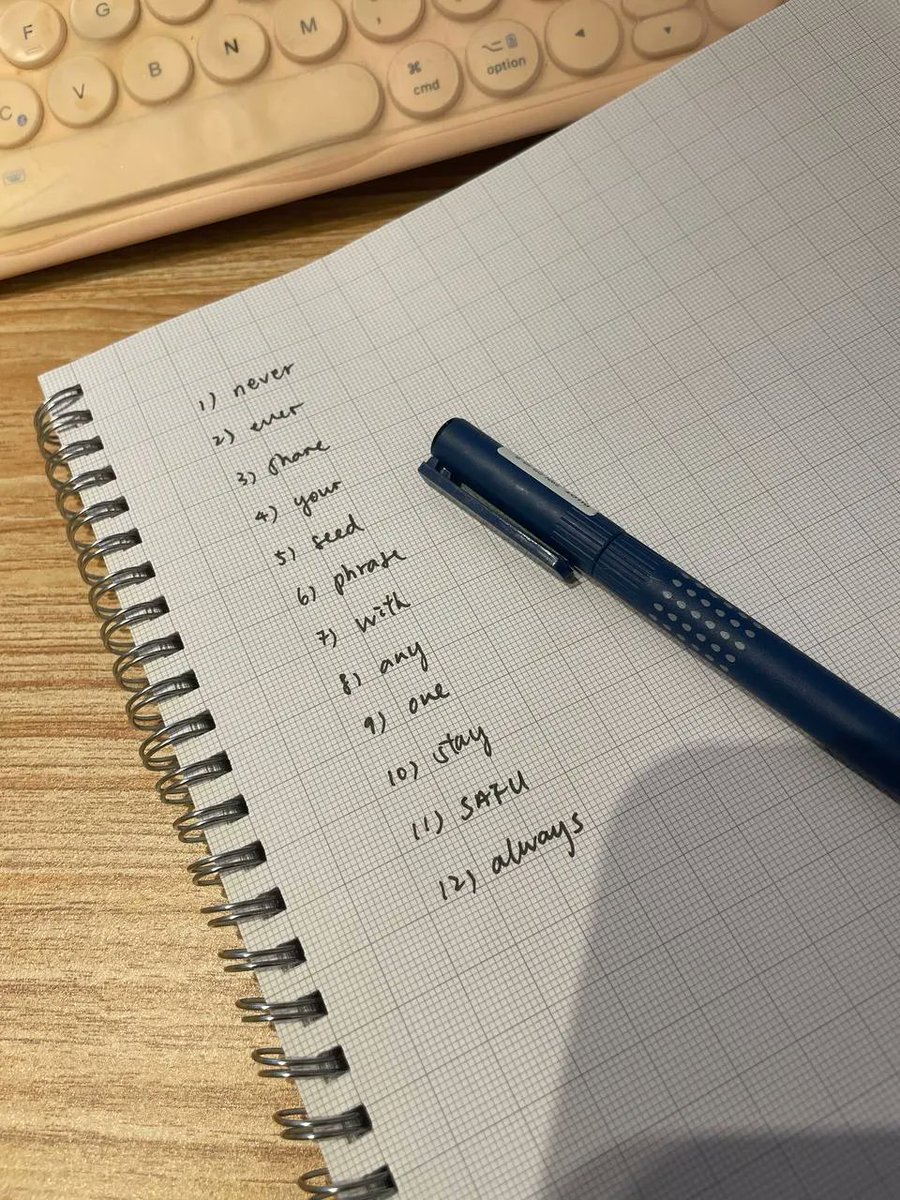 F
G
C
V
B
N
M
,
⌘
cmd
option
1) never
2) ever
3) share
4) your
5) seed
6) phrase
7) with
8) any
9) one
10) stay
11) SAFU
12) always